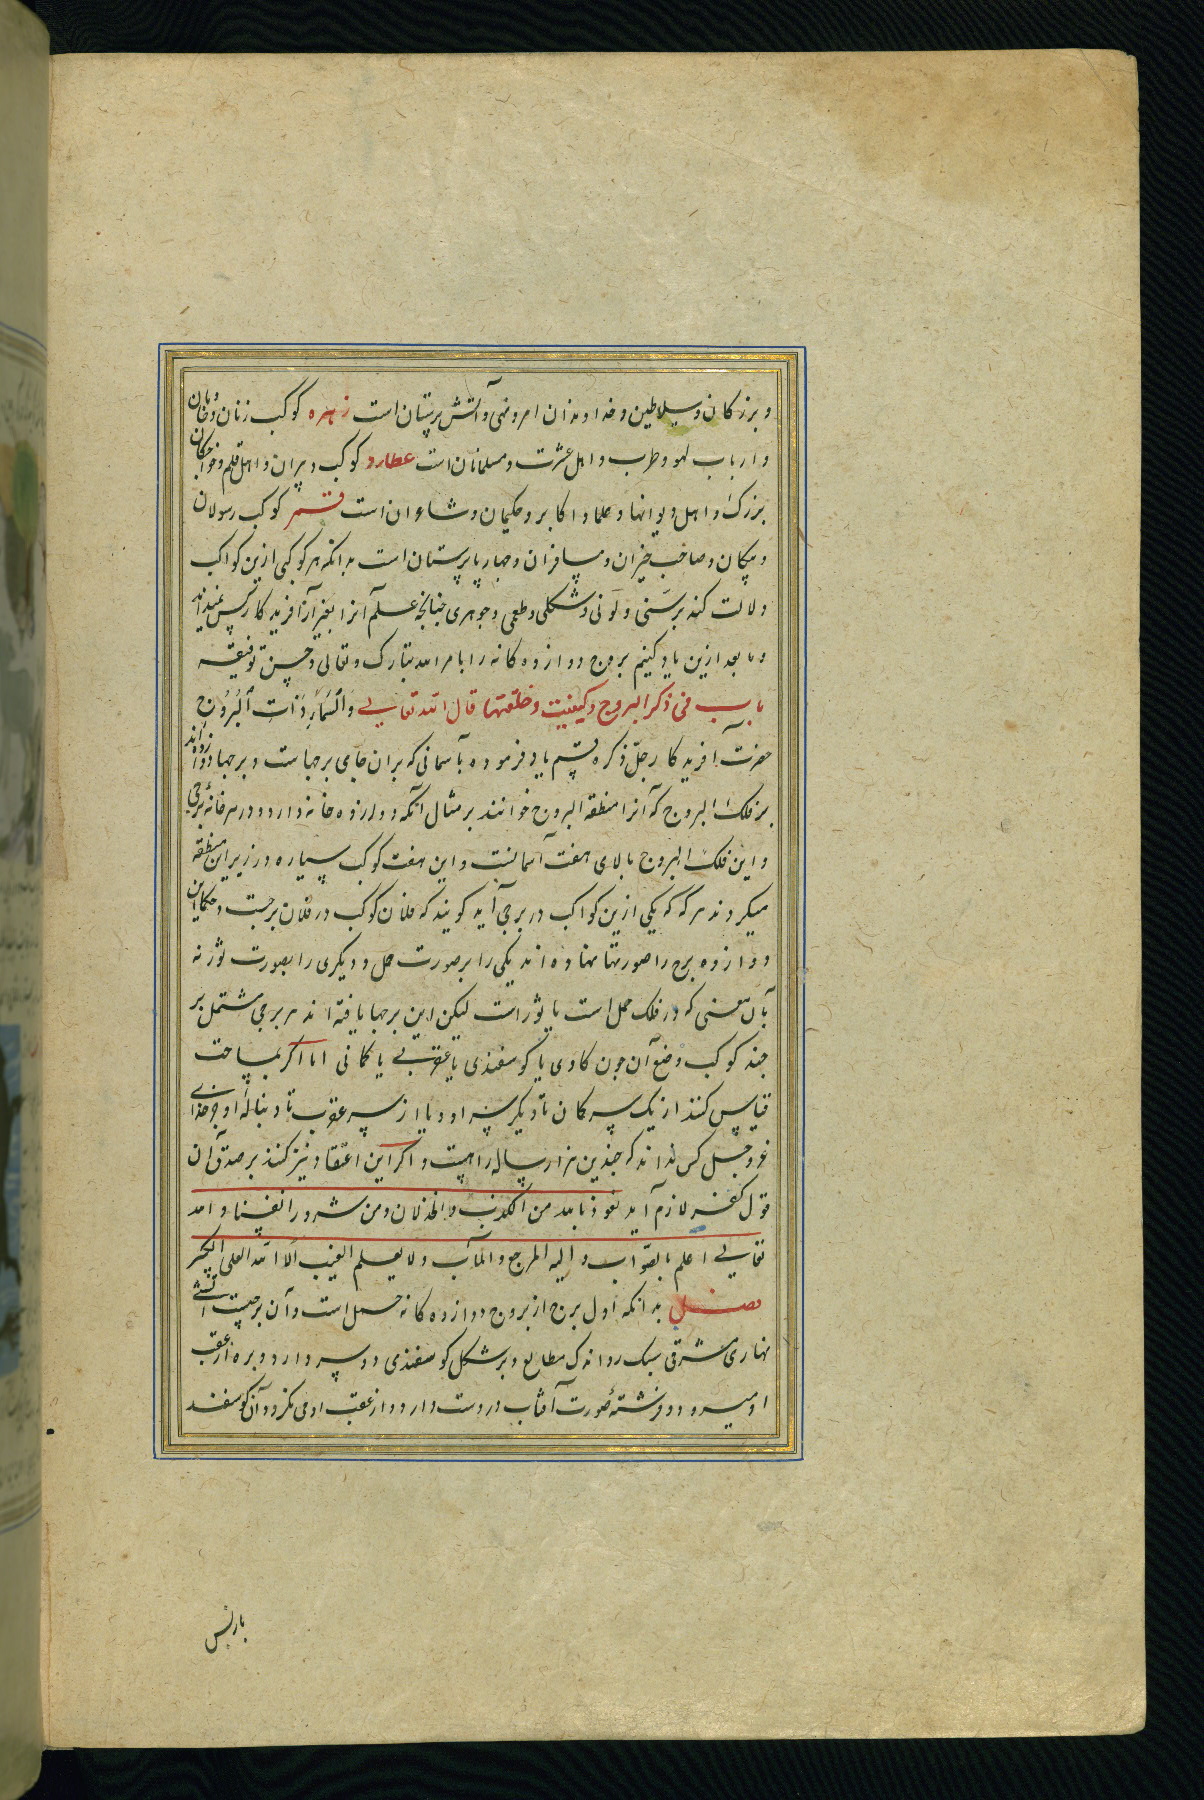 و بزرگان و سلاطین و خداوندان امر و نهی و آتش پرستان است زهره کوکب زنان و
و ارباب لهو و طرب و اهل عشرت و مسلمانان است عطارد کوکب دبیران و اهل قلم و خواجگان
بزرک و اهل دیوانها و علما و اکابر و حکیمان و شاعران است قمر کوکب رسولان
و پیکان و صاحب خبران و مسافران و چهارپاپرستان است بدانکه هر کوکبی ازین کواکب
دلالت کند بر سنی و لونی و شکلی و طعمی و جوهری چنانچه علم آنرا بغیر از آفریدکار کس نمیداند
و ما بعد ازین یاد کنیم بروج دوازده کانه را بامر الله تبارک و تعالی و حسن توفیقه
باب فی ذکر البروج و کیفیت و خلقتها قال الله تعالی وَالسَّمَاءِ ذَاتِ الْبُرُوجِ
حضرت آفریدکار جلّ ذکره قسم یاد فرموده بآسمانی که بران جای برجهاست و برجها دوازده اند
بر فلک البروج که آنرا منطقة البروج خوانند بر مثال آنکه دوازده خانه دارد و در هر خانهٔ برجی
و این فلک البروج بالای هفت آسمانست و این هفت کوکب سیاره در زیر این منطقه
میکردند هر که که یکی ازین کواکب در برجی آید کویند که فلان کوکب در فلان برجست و حکما این
دوازده برج را صورتها نهاده اند یکی را بر صورت حمل و دیکری را بصورت ثور نه
بآن معنی که در فلک حمل است یا ثور است لیکن این برجها یافته اند هر برجی مشتمل بر
چند کوکب وضع آن چون کاوی یا کوسفندی یا عقربی یا کمانی اما اکر بمساحت
قیاس کنند از یک سر کمان تا دیکر سر او و یا از سر عقرب تا دنبالهٔ او جز خدای
عز و جل کس نداند که چندین هزار ساله راهست و اکر این اعتقاد نیز کنند بر صدق آن
قول کفر لازم آید نعوذ بالله من الکذب و الخذلان و من شرور انفسنا و الله
تعالی اعلم بالصواب و الیه المرجع و المآب و لا یعلم الغیب الا الله العلی الکبیر
فصل بدانکه اول برج از بروج دوازده کانه حمل است و آن برجیست آتشی
نهاری مشرقی سبک رو اندک مطالع و بر شکل کوسفندی دو سر دارد و بره از عقب
او میرود و فرشتهٔ صورت آفتاب در دست دارد و از عقب او می نکرد و آن کوسفند